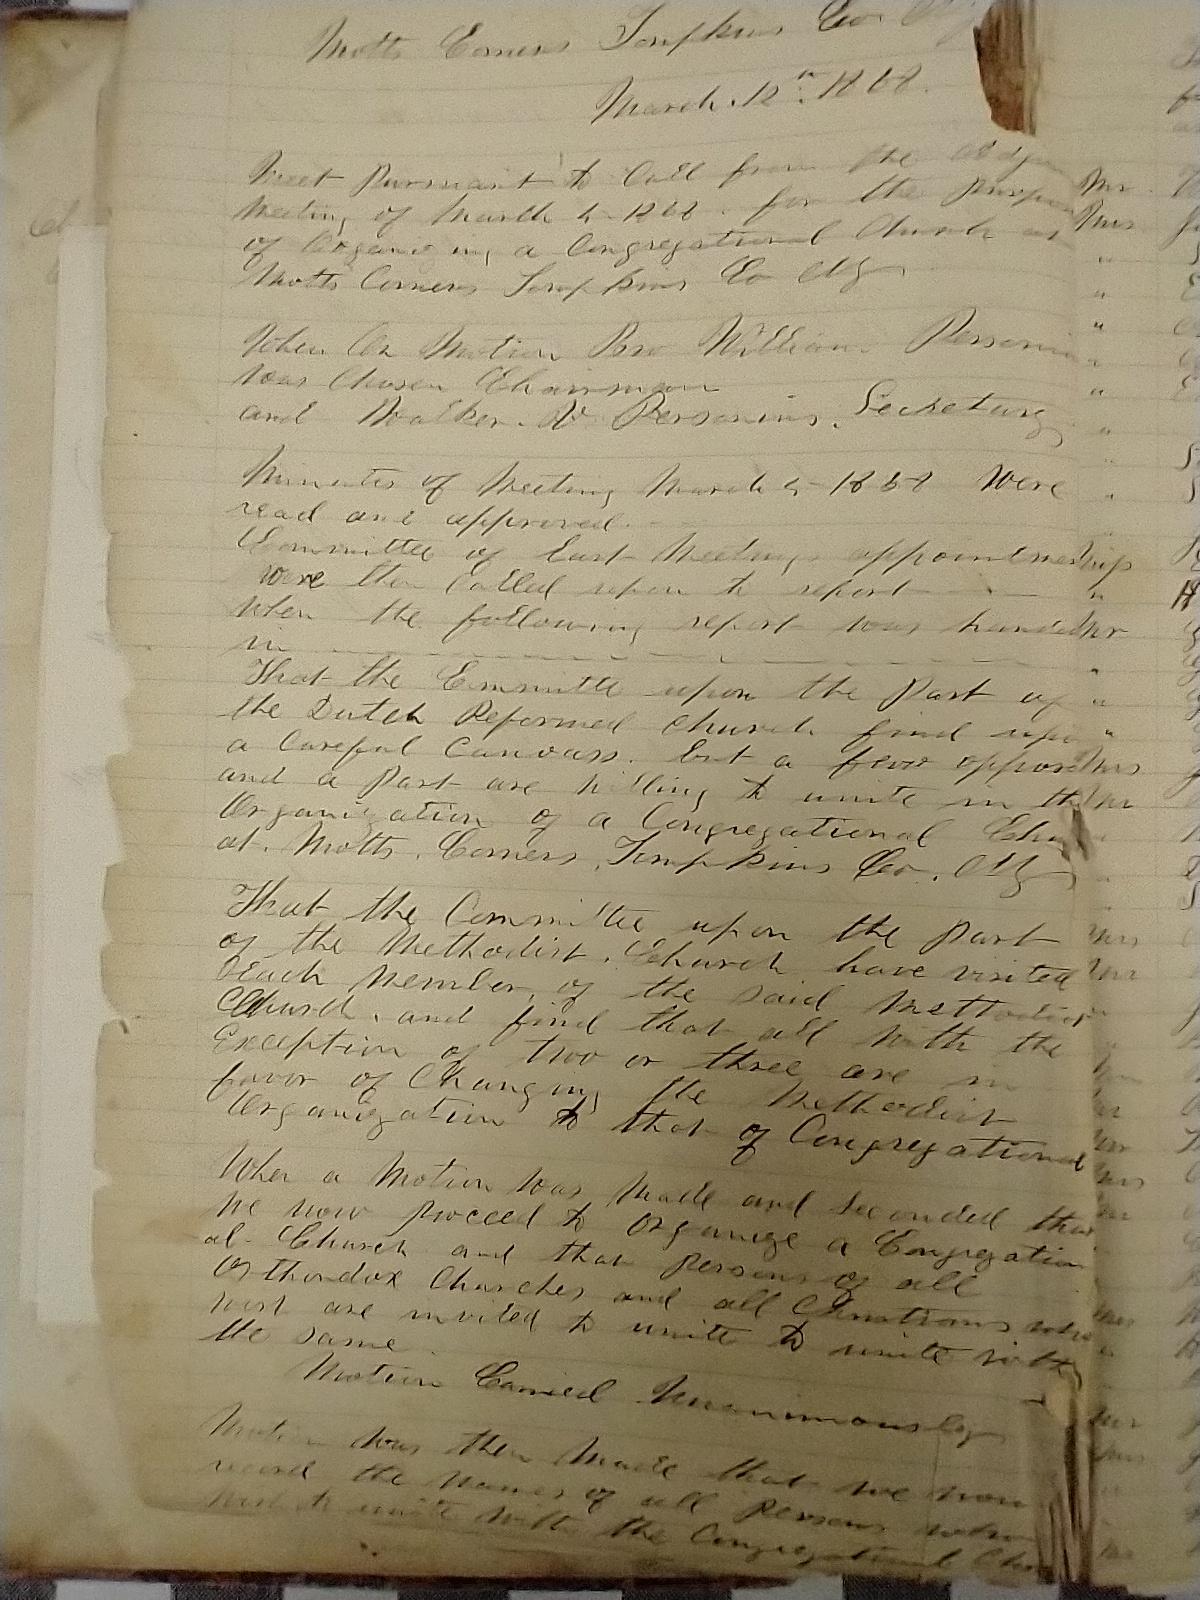 Motts Corners Tompkins Co NY
March 12th 1868.
Meet Pursuant to Call from the Adjn
Meeting of March 4 1868. for the purpose
of Organizing a Congregational Church at
Motts Corners Tompkins Co NY
When On Motion Bro William Personius
was Chosen Chairman
and Walker. V. Personius. Secretary
Minutes of Meeting March 4 1868 Were
read and approved.
Committee of Last Meetings appointment
were then Called upon to report
when the following report was handed
in
That the Committe upon the Part of
the Dutch Reformed Church find upon
a Careful Canvass. but a few opposed
and a Part are Willing to unite in the
Organization of a Congregational Chu
at. Motts. Corners, Tompkins Co. NY
That the Committee upon the Part
of the Methodist. Church have visited
Each Member, of the said Methodist
Church, and find that all With the
Exception of two or three are in
favor of Changing the Methodist
Organization to that of Congregational
When a Motion Was Made and Seconded that
We now Proceed to Organize a Congregation
al- Church and that Persons of all
Orthodox Churches and all Christians who
wish are invited to unite to unite with
the same.
Motion Carried Unanimously
Motion Was then Made that we now
record the Names of all Persons who
wish to unite With the Congregational Chu